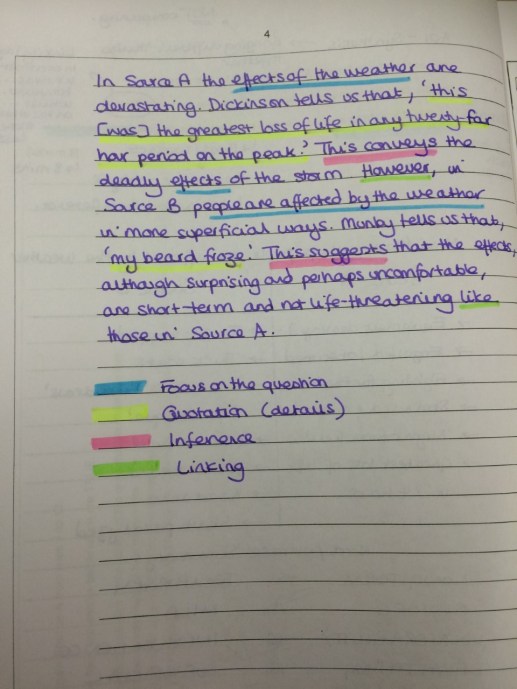 4
In Source A the effects of the weather are
devastating. Dickinson tells us that, 'this
[was] the greatest loss of life in any twenty-four
hour period on the peak.' This conveys the
deadly effects of the storm. However, in
Source B people are affected by the weather
in more superficial ways. Munby tells us that,
'my beard froze.' This suggests that the effects,
although surprising and perhaps uncomfortable,
are short-term and not life-threatening like
those in Source A.
Focus on the question
Quotation (details)
Inference
Linking